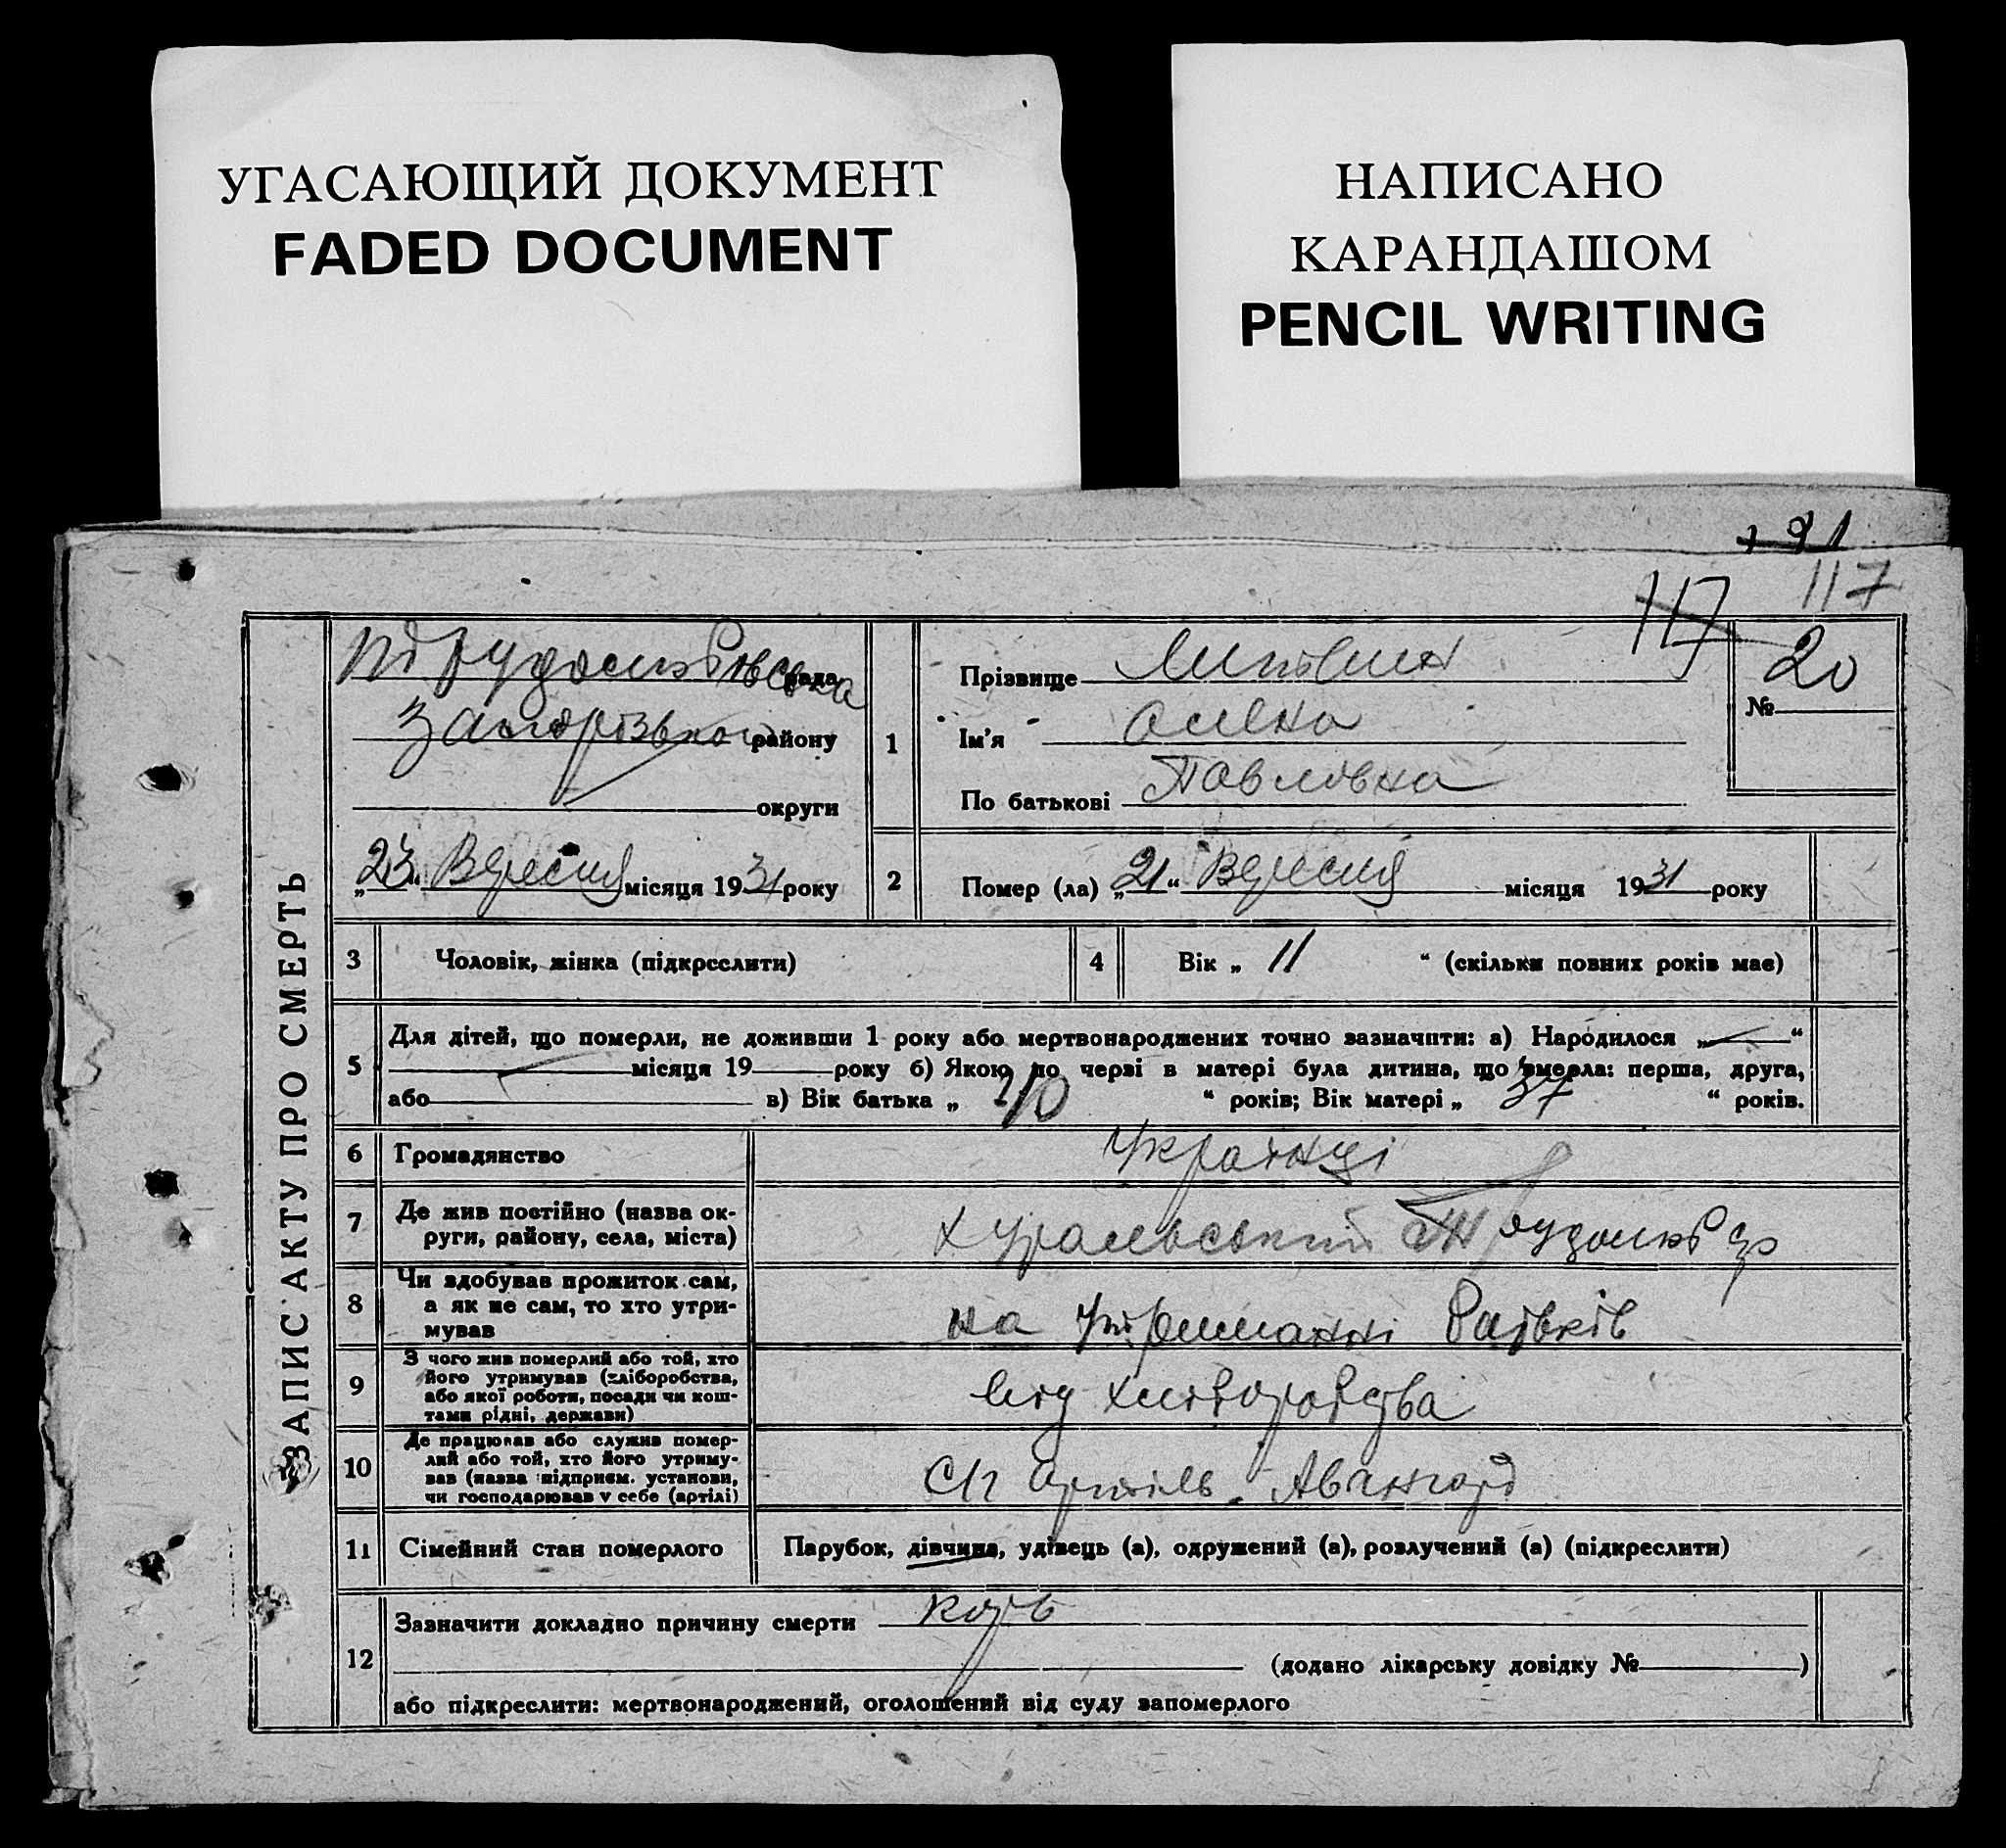 УГАСАЮЩИЙ ДОКУМЕНТ
FADED DOCUMENT
НАПИСАНО
КАРАНДАШОМ
PENCIL WRITING
191
117
117
ЗАПИС АКТУ ПРО СМЕРТЬ
рада
району
округи
„23“ Вересня місяця 1931 року
1
Прізвище Литвин
Ім'я Олена
По батькові Павловна
№ 20
2 Помер (ла) „21“ Вересня місяця 1931 року
3 Чоловік, жінка (підкреслити)
4 Вік „ 11 “ (скільки повних років має)
5 Для дітей, що померли, не доживши 1 року або мертвонароджених точно зазначити: а) Народилося „ “
місяця 19 року б) Якою по черзі в матері була дитина, що вмерла: перша, друга,
або в) Вік батька „ 40 “ років; Вік матері „ 37 “ років.
6 Громадянство Українці
7 Де жив постійно (назва ок-
руги, району, села, міста)
8 Чи здобував прожиток сам,
а як не сам, то хто утри-
мував
на утриманні батьків
9 З чого жив померлий або той, хто
його утримував (хліборобства,
або якої роботи, посади чи кош-
тами рідні, держави)
від хліборобства
10 Де працював або служив помер-
лий або той, хто його утриму-
вав (назва підприєм. установи,
чи господарював у себе (артілі)
С/г артіль Авангард
11 Сімейний стан померлого Парубок, дівчина, удівець (а), одружений (а), розлучений (а) (підкреслити)
12 Зазначити докладно причину смерти Корь
(додано лікарську довідку № )
або підкреслити: мертвонароджений, оголошений від суду запомерлого